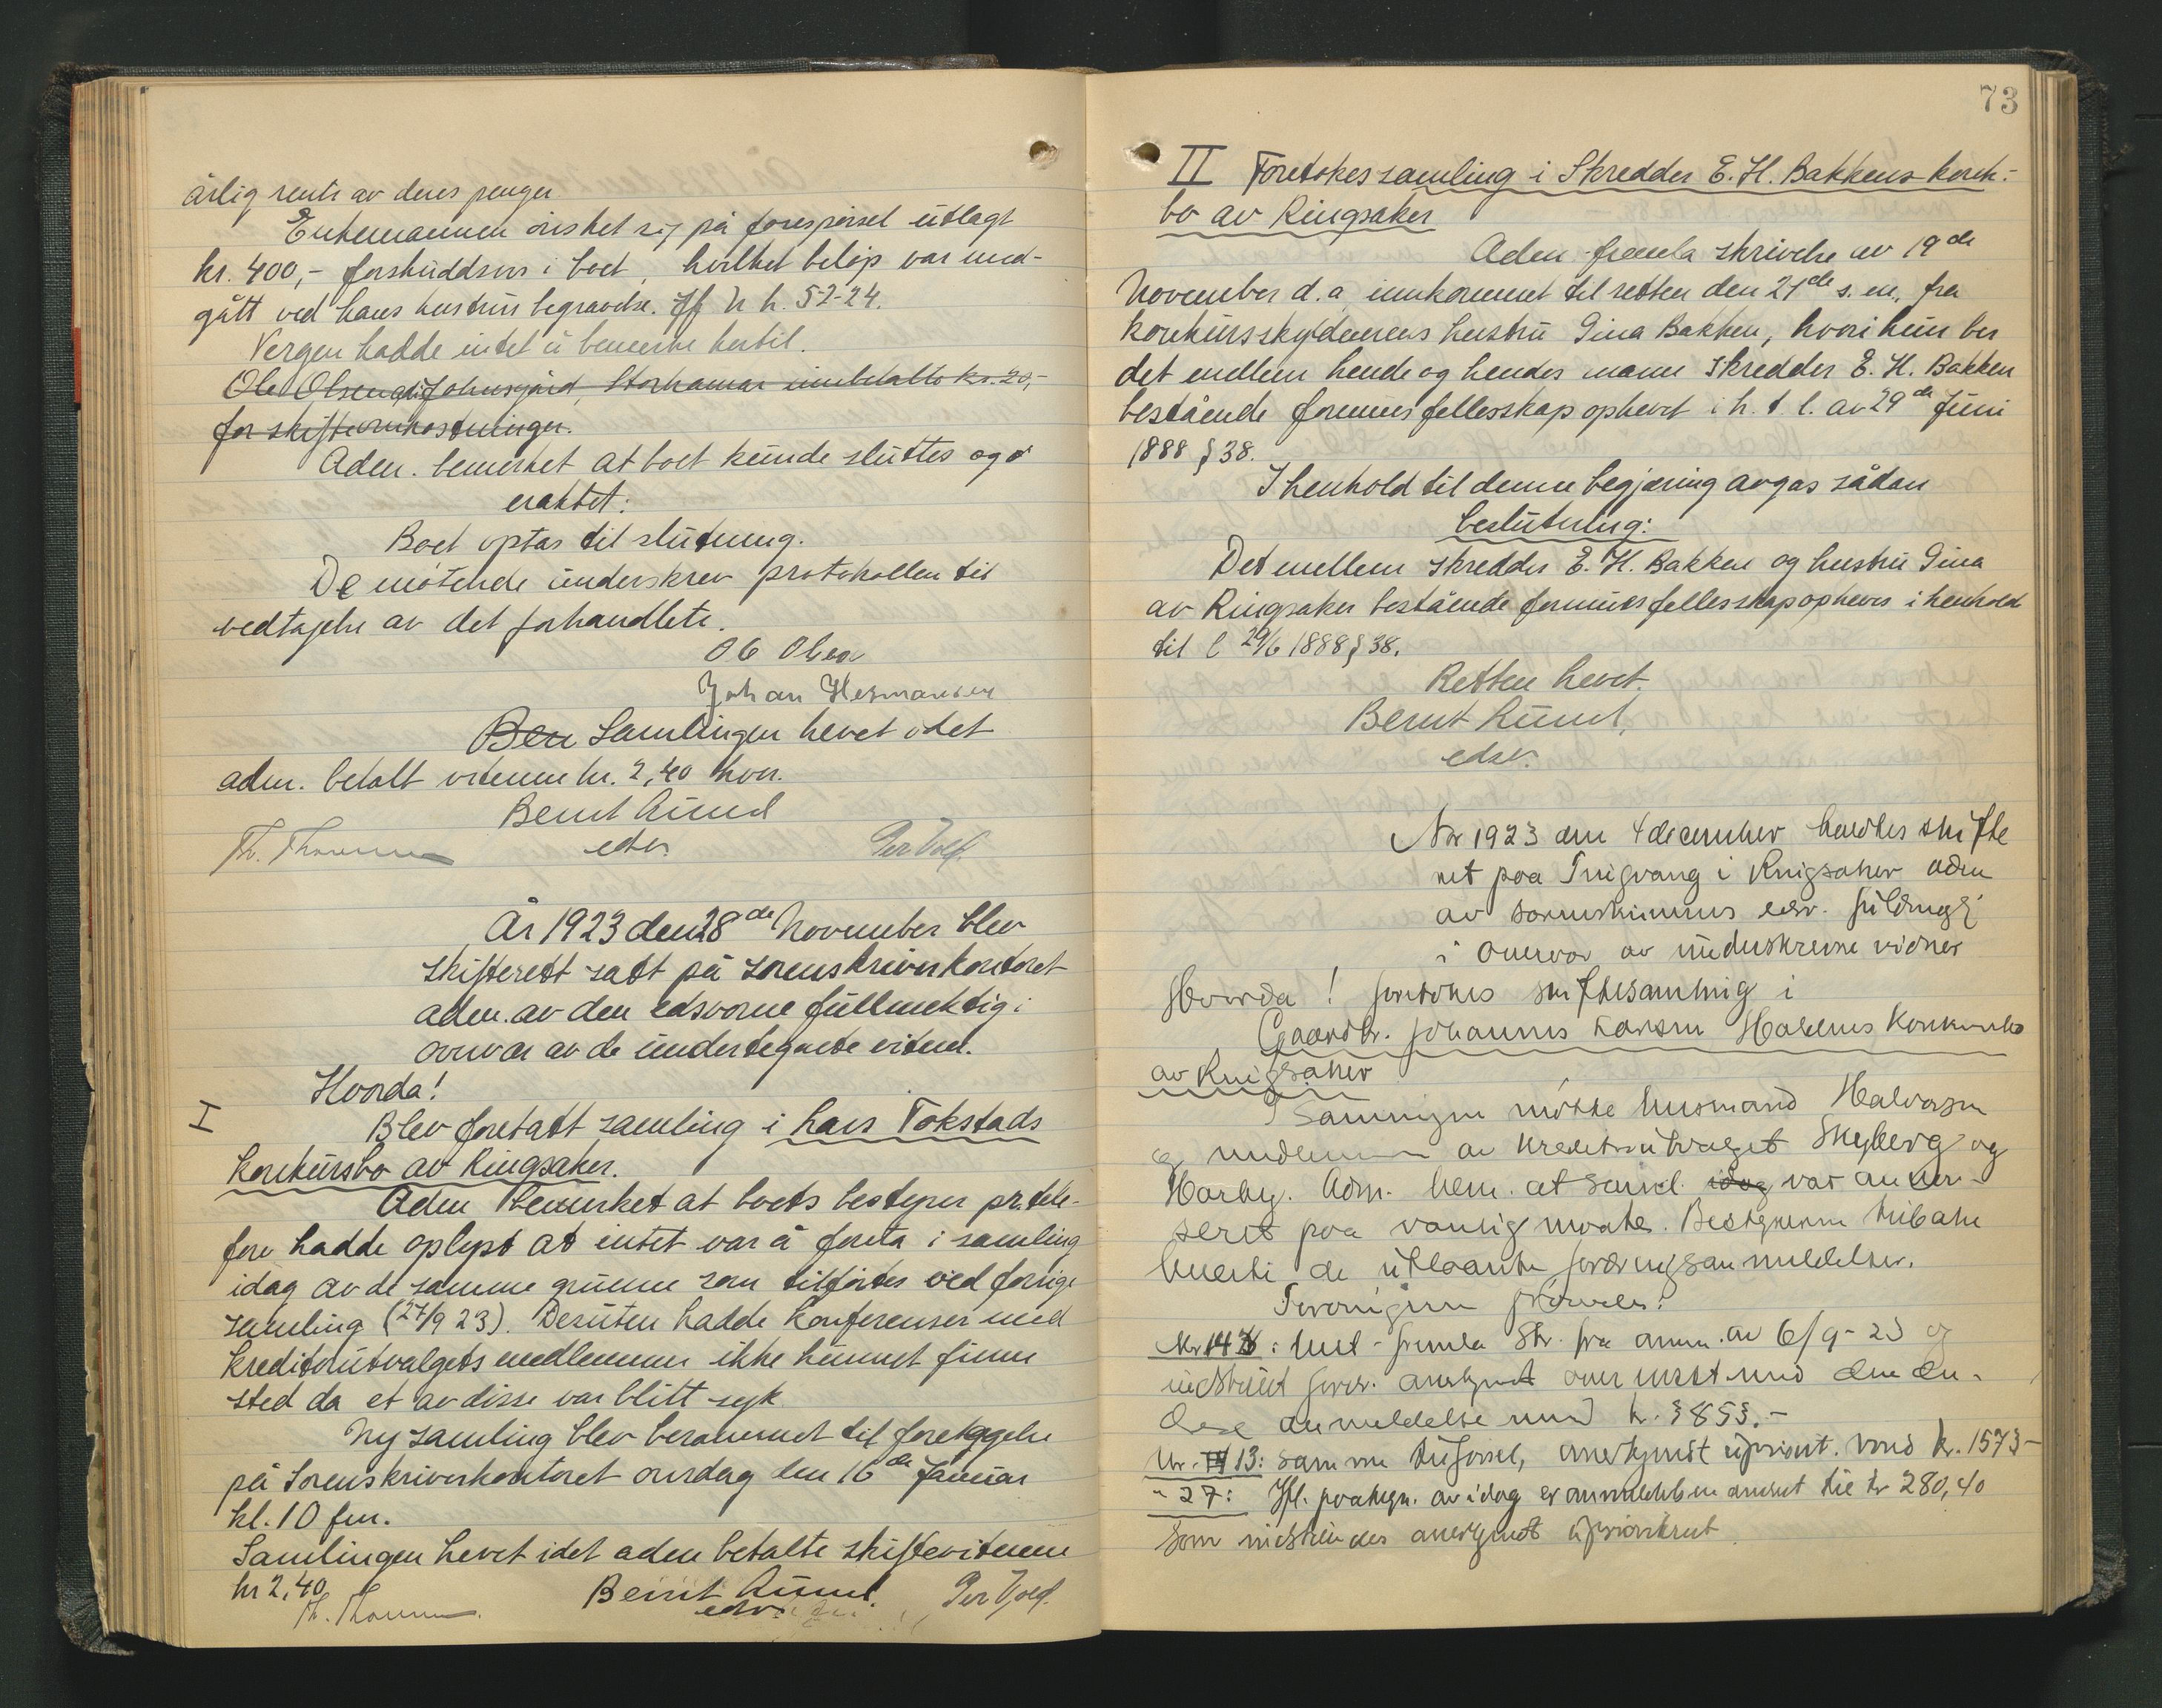 årlig rente av deres penger
Enkemannen ønsket sig på forespørsel utlagt
kr. 400,- forskuddsvis i boet, hvilket beløp var med-
gått ved hans hustrus begravelse. Jf
Vergen hadde intet å bemerke hertil.
Ole Olsen Johnsgård, Storhamar innbetalte kr. 20,-
for skifteomkostninger.
Adm. bemerket at boet kunde sluttes og
eraktet:
Boet optas til slutning.
De møtende underskrev protokollen til
vedtagelse av det forhandlete.
Ole Olsen
Johan Hermansen
Ben Samlingen hevet idet
adm. betalt vitnene kr. 2,40 hver.
Bernt Lund
edsv.
Th. Per Vold
År 1923 den 28de November blev
skifterett satt på sorenskriverkontoret
adm. av den edsvorne fullmektig i
overvær av de undertegnete vitner.
Hvorda!
I
Blev foretatt samling i Lars Tokstads
konkursbo av Ringsaker.
Adm bemerket at boets bestyrer pr. tele-
fon hadde oplyst at intet var å foreta i samling
idag av de samme grunne som tilførtes ved forrige
samling (27/9 23). Desuten hadde konferenser med
kreditorutvalgets medlemmer ikke kunnet finne
sted da et av disse var blitt syk.
Ny samling blev berammet til foretagelse
på Sorenskriverkontoret onsdag den 16de Januar
kl. 10 fm.
Samlingen hevet idet adm betalte skiftevitnene
kr 2,40
Th. Bernt Lund. Per Vold.
edsv
73
II Foretokes samling i Skredder E. H. Bakkens konk.-
bo av Ringsaker
Adm fremla skrivelse av 19de
November d. a innkommet til retten den 21de s. m. fra
konkursskyldnerens hustru Gina Bakken, hvori hun ber
det mellem hende og hendes mann skredder E. H. Bakken
bestående formuesfellesskap ophevet i h. t. l. av 29de Juni
1888 § 38.
I henhold til denne begjæring avgas sådan
beslutning:
Det mellem skredder E. H. Bakken og hustru Gina
av Ringsaker bestående formuesfellesskap opheves i henhold
til l 29/6 1888 § 38.
Retten hevet.
Bernt Lund,
edsv.
Aar 1923 den 4 december holdtes skifte
ret paa Tingvang i Ringsaker adm
av sorenskriverens edsv. fuldmægt
i overvær av underskrevne vidner
Hvorda! foretokes skiftesamling i
Gaardbr. Johannes Larsen Konkursbo
av Ringsaker
I samlingen møtte husmand Halvorsen
og medlemmer av kreditorutvalget Skyberg og
Harby. Adm. bem. at saml. idag var aver-
seret paa vanlig maate. Bestyreren tilbake
leverte de utlaante fordringsanmeldelser.
Fordringerne prøvedes:
Nr 14 : Best. fremla Skr. fra anm. av 6/9-23 og
indstillet fordr. anerkjendt
anmeldelse med kr.
Nr. 13: samme tilførsel, anerkjendt uprior. med kr. 1573-
" 27: Ifl. paategn. av idag er anmeldelsen ændret til kr 280,40
som indstilles anerkjendt uprioritert